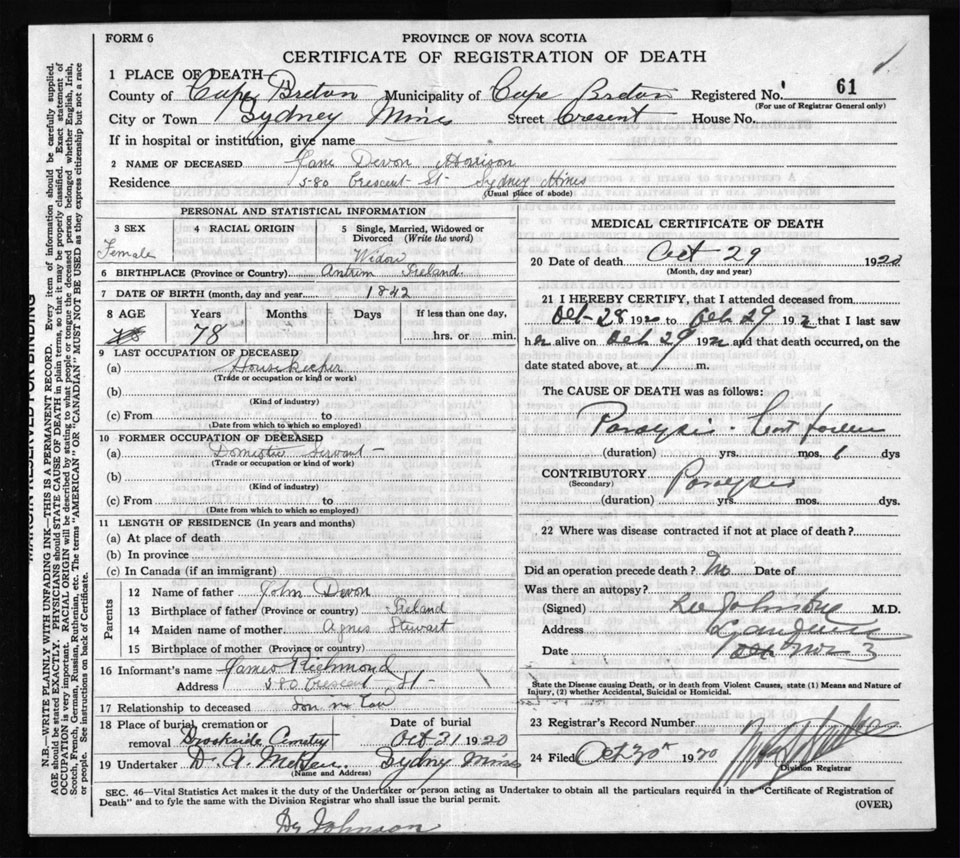 FORM 6
PROVINCE OF NOVA SCOTIA
CERTIFICATE OF REGISTRATION OF DEATH
1 PLACE OF DEATH
County of Cape Breton Municipality of Cape Breton Registered No. 61
(For use of Registrar General only)
City or Town Sydney Mines Street Cresent House No.
If in hospital or institution, give name
2 NAME OF DECEASED Jane Devon Morrison
Residence 580 Crescent St Sydney Mines
(Usual place of abode)
PERSONAL AND STATISTICAL INFORMATION
3 SEX
Female
4 RACIAL ORIGIN
5 Single, Married, Widowed or Divorced (Write the word)
Widow
6 BIRTHPLACE (Province or Country) Antrim Ireland
7 DATE OF BIRTH (month, day and year) 1842
8 AGE Years Months Days If less than one day,
78 hrs. or min.
9 LAST OCCUPATION OF DECEASED
(a) Housekeeper
(Trade or occupation or kind or work)
(b)
(Kind of industry)
(c) From to
(Date from which to which so employed)
10 FORMER OCCUPATION OF DECEASED
(a) Domestic Servant
(Trade or occupation or kind of work)
(b)
(Kind of industry)
(c) From to
(Date from which to which so employed)
11 LENGTH OF RESIDENCE (In years and months)
(a) At place of death
(b) In province
(c) In Canada (if an immigrant)
Parents
12 Name of father John Devon
13 Birthplace of father (Province or country) Ireland
14 Maiden name of mother Agnes Stewart
15 Birthplace of mother (Province or country)
16 Informant's name James Richmond
Address 580 Crescent St
17 Relationship to deceased Son in Law
18 Place of burial, cremation or Date of burial
removal Brookside Cemetry Oct 31 1920
19 Undertaker D. A. Sydney Mines
(Name and Address)
MEDICAL CERTIFICATE OF DEATH
20 Date of death Oct 29 1920
(Month, day and year)
21 I HEREBY CERTIFY, that I attended deceased from
Oct 28 192 to Oct 29 192 that I last saw
h alive on Oct 29 192 and that death occurred, on the
date stated above, at m.
The CAUSE OF DEATH was as follows:
Paralysis
(duration) yrs. mos. dys
CONTRIBUTORY Paralysis
(Secondary)
(duration) yrs. mos. dys.
22 Where was disease contracted if not at place of death?
Did an operation precede death? No Date of
Was there an autopsy?
(Signed) Johnstone M.D.
Address
Date
State the Disease causing Death, or in death from Violent Causes, state (1) Means and Nature of
Injury, (2) whether Accidental, Suicidal or Homicidal.
23 Registrar's Record Number
24 Filed Oct 30 1920
Division Registrar
SEC. 46—Vital Statistics Act makes it the duty of the Undertaker or person acting as Undertaker to obtain all the particulars required in the "Certificate of Registration of
Death" and to fyle the same with the Division Registrar who shall issue the burial permit.
(OVER)
Johnson
MARGIN RESERVED FOR BINDING
N.B.—WRITE PLAINLY WITH UNFADING INK—THIS IS A PERMANENT RECORD. Every item of information should be carefully supplied.
AGE should be stated EXACTLY. PHYSICIANS should STATE CAUSE OF DEATH in plain terms, so that it may be properly classified. Exact statement of
OCCUPATION is very important. RACIAL ORIGIN will be described by stating to what people or tongue the deceased person belonged whether English, Irish,
Scotch, French, German, Russian, Ruthenian, etc. The terms "AMERICAN" OR "CANADIAN" MUST NOT BE USED as they express citizenship but not a race
or people. See instructions on back of Certificate.